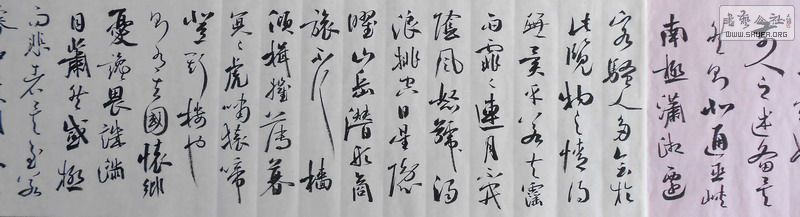 前人之述备矣
然则北通巫峡
南極瀟湘遷
客騷人多会於
此覽物之情得
無異乎若夫霪
雨霏〻連月不开
陰風怒號濁
浪排空日星隱
曜山岳潛形商
旅不行檣
傾楫摧薄暮
冥〻虎嘯猿啼
登斯樓也
則有去國懷鄉
憂讒畏譏滿
目蕭然感極
而悲者矣至若
WWW.SHUFA.ORG